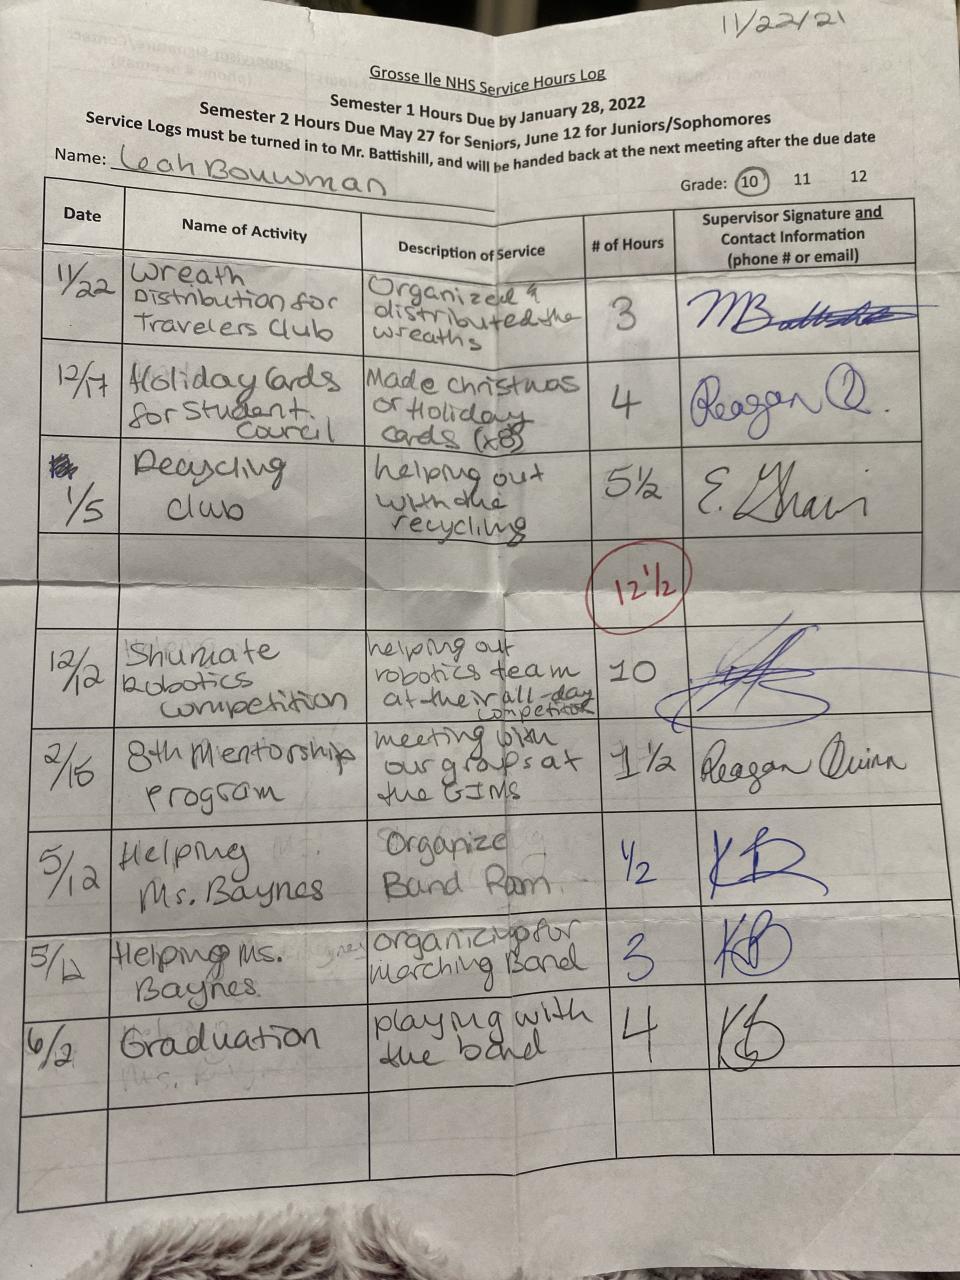 11/22/21
Grosse Ile NHS Service Hours Log
Semester 1 Hours Due by January 28, 2022
Semester 2 Hours Due May 27 for Seniors, June 12 for Juniors/Sophomores
Service Logs must be turned in to Mr. Battishill, and will be handed back at the next meeting after the due date
Name: Leah Bouwman
Grade: 10 11 12
Date
Name of Activity
Description of Service
# of Hours
Supervisor Signature and
Contact Information
(phone # or email)
11/22
Wreath
Distribution for
Travelers Club
Organized &
distributed the
wreaths
3
12/17
Holiday Cards
for Student
Council
Made christmas
or Holiday
cards (x8)
4
Reagan Q.
1/5
Recycling
club
helping out
with the
recycling
5 1/2
12 1/2
12/12
Shumate
Robotics
competition
helping out
robotics team
at their all-day
competition
10
2/15
8th Mentorship
program
meeting with
our groups at
the GIMS
1 1/2
Reagan Quinn
5/12
Helping
Ms. Baynes
Organize
Band Room
1/2
KB
5/12
Helping Ms.
Baynes
organizing for
Marching Band
3
KB
6/2
Graduation
playing with
the band
4
KB